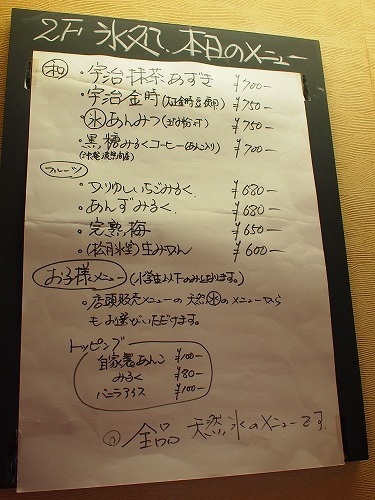 2F 氷処、本日のメニュー
和
・宇治抹茶あずき ￥700-
・宇治金時(大正金時豆使用) ￥750-
・氷あんみつ(きな粉付) ￥750-
・黒糖みるくコーヒー(あん入り) ￥700-
フルーツ
・つりゅしいちごみるく. ￥680-
・あんずみるく. ￥680-
・完熟梅 ￥650-
・(松月氷室)生みかん ￥600-
お子様メニュー(小学生以下のみとなります。)
・店頭販売メニューの天然氷のメニューから
もお選びいただけます。
トッピング
自家製あんこ ￥100-
みるく ￥80-
バニラアイス ￥100-
全品 天然氷のメニューです.